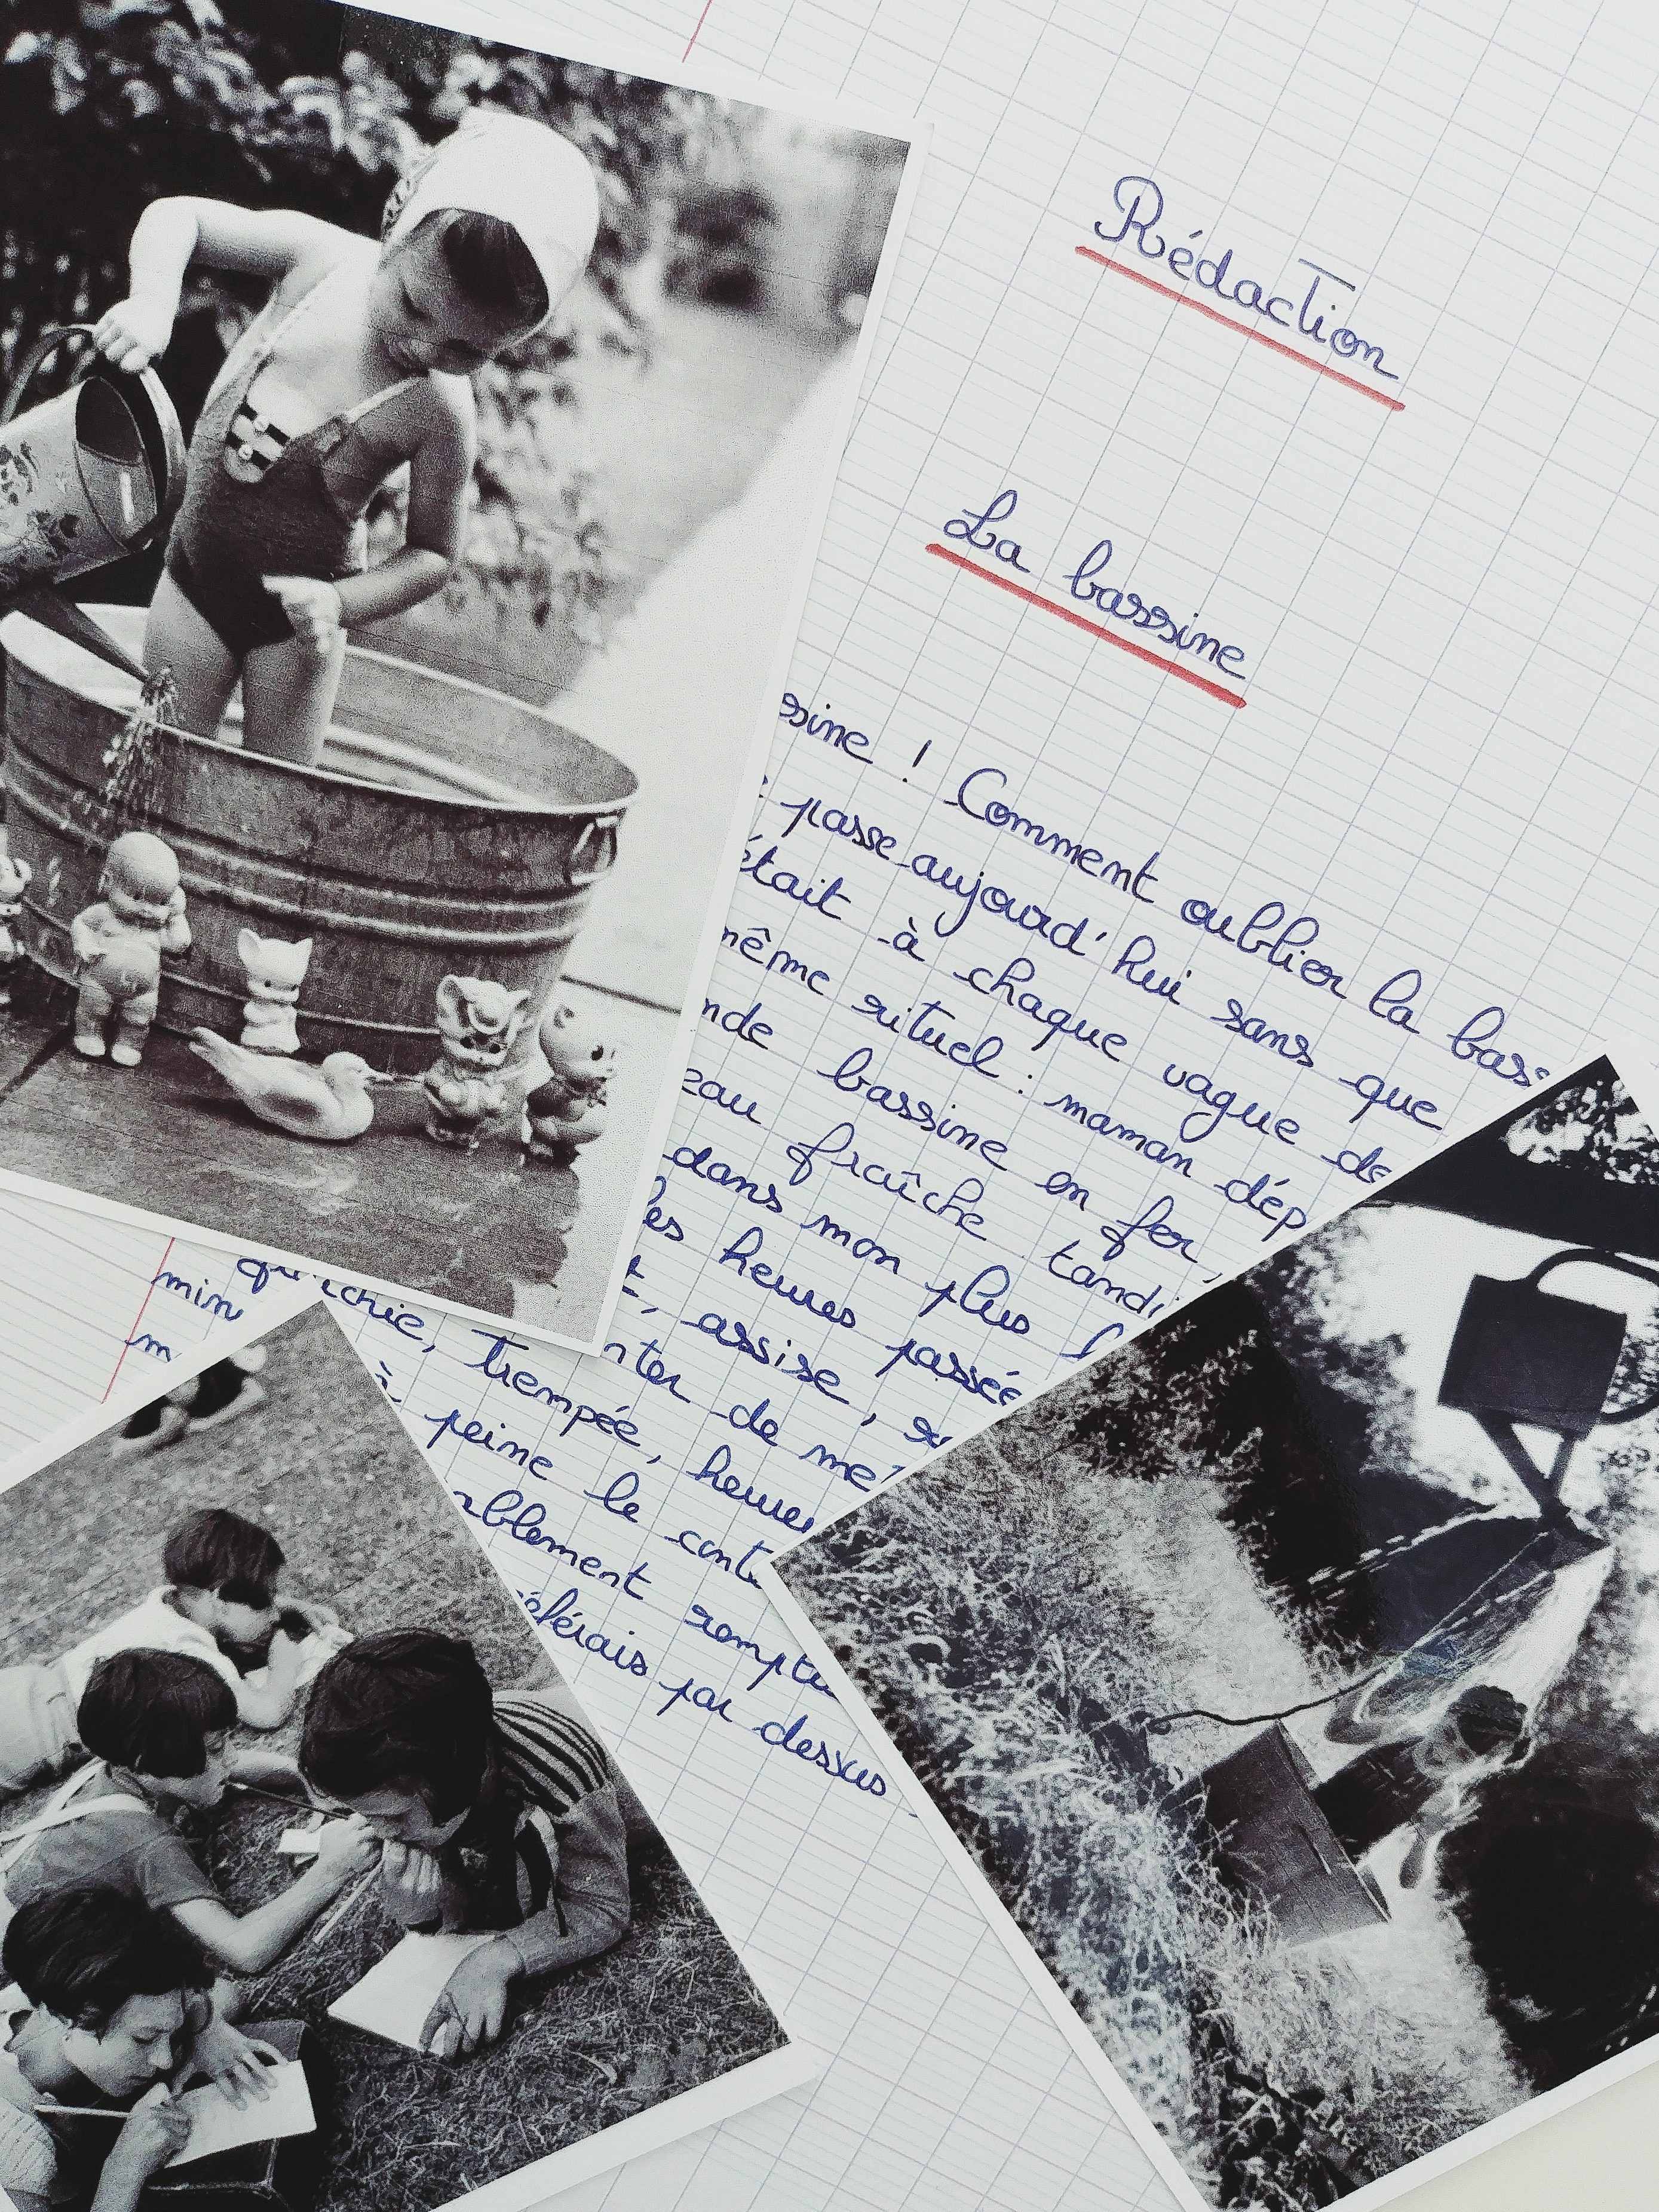 Rédaction
La bassine
ssine ! Comment oublier la bass
passe aujourd'hui sans que
était à chaque vague de
même rituel : maman dép
nde bassine en fer,
eau fraîche tandi
dans mon plus
les heures passée
t, assise, su
nter de me
min
m
chie, trempée, heureu
à peine le conte
ablement rempli
éférais par dessus